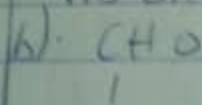 b). CHO
|